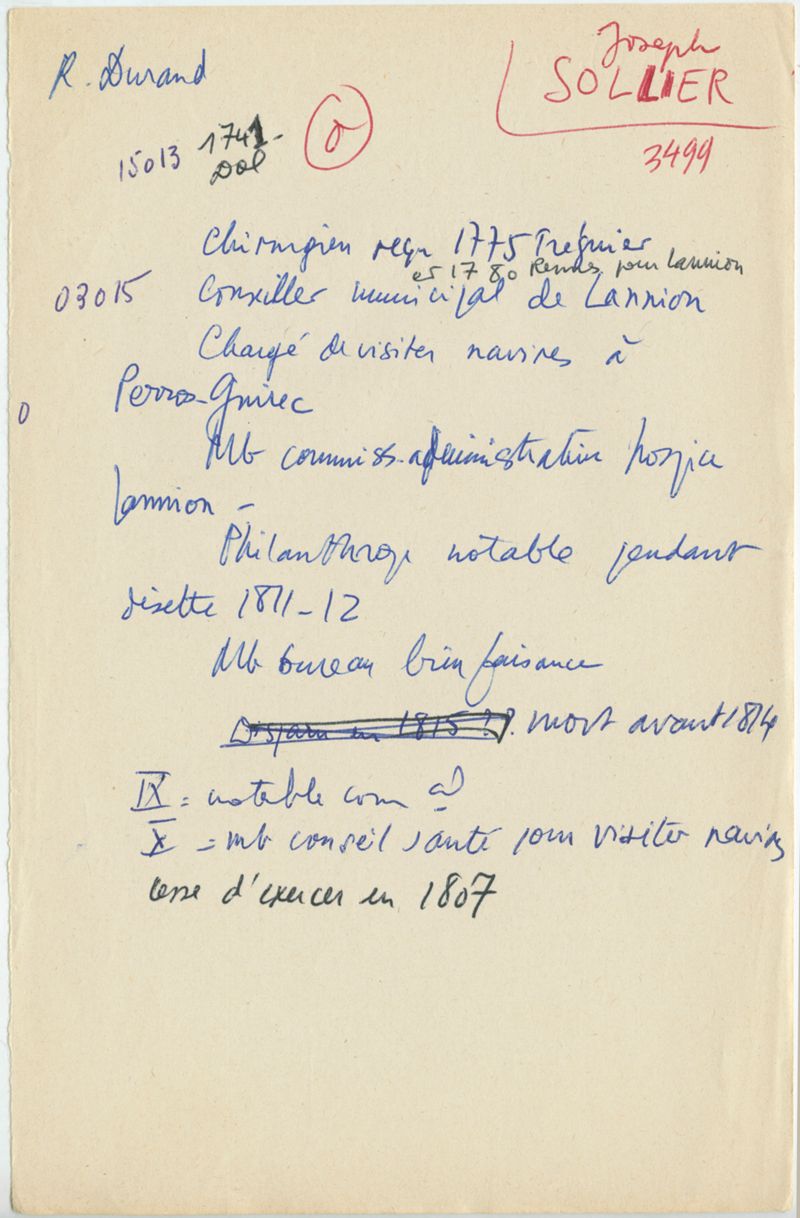 R. Durand
Joseph
SOLLIER
3499
15013 1741-
Dol
Chirurgien reçu 1775 Tréguier
et 1780 Rennes pour Lannion
03015 Conseiller municipal de Lannion
Chargé de visiter navires à
Perros-Guirec
0
Mb commiss. administrative hospice
Lannion -
Philanthrope notable pendant
disette 1811-12
Mb bureau bienfaisance
Disparu en 1815 ?? mort avant 1814
IX = notable com
X = mb conseil santé pour visiter navires
cesse d'exercer en 1807